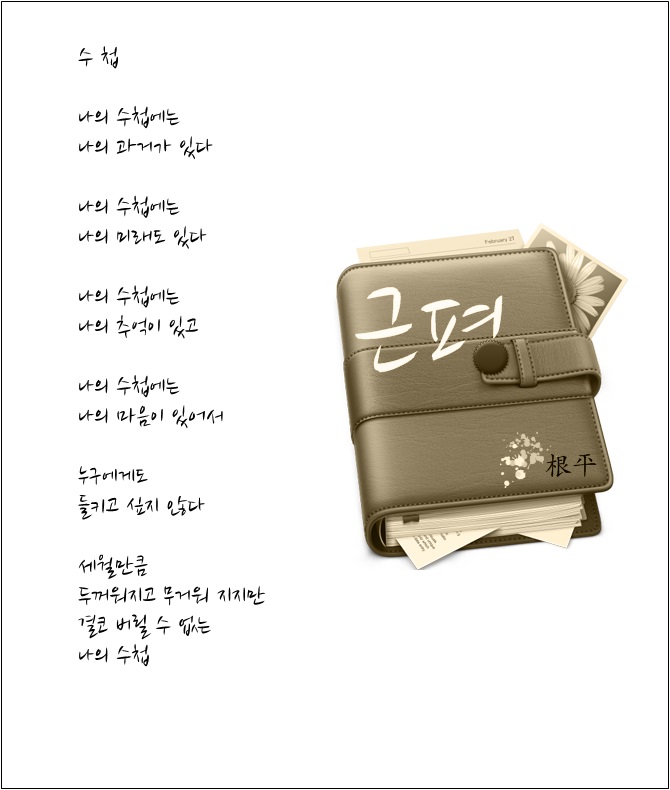 수 첩
나의 수첩에는
나의 과거가 있다
나의 수첩에는
나의 미래도 있다
나의 수첩에는
나의 추억이 있고
나의 수첩에는
나의 마음이 있어서
누구에게도
들키고 싶지 않다
세월만큼
두꺼워지고 무거워 지지만
결코 버릴 수 없는
나의 수첩
February 27
근펴
根平